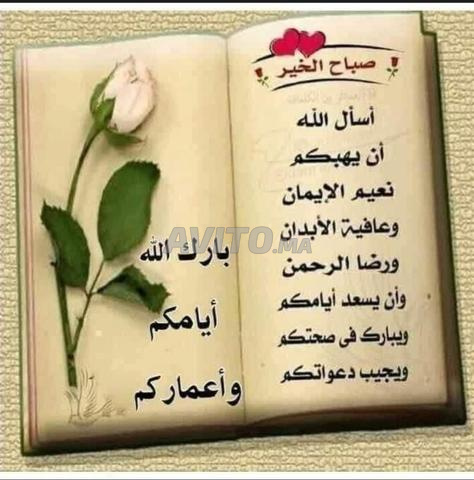 صباح الخير
أسأل الله
أن يهبكم
نعيم الإيمان
وعافية الأبدان
ورضا الرحمن
وأن يسعد أيامكم
ويبارك في صحتكم
ويجيب دعواتكم
بارك الله
أيامكم
وأعماركم
AVITO.MA